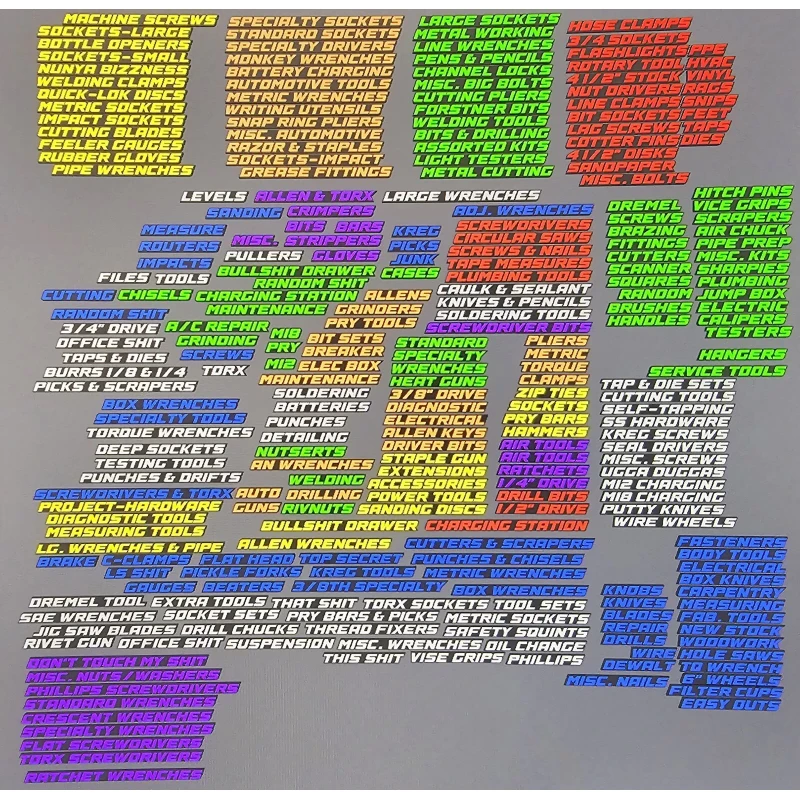 MACHINE SCREWS
SOCKETS-LARGE
BOTTLE OPENERS
SOCKETS-SMALL
NUNYA BIZZNESS
WELDING CLAMPS
QUICK-LOK DISCS
METRIC SOCKETS
IMPACT SOCKETS
CUTTING BLADES
FEELER GAUGES
RUBBER GLOVES
PIPE WRENCHES
SPECIALTY SOCKETS
STANDARD SOCKETS
SPECIALTY DRIVERS
MONKEY WRENCHES
BATTERY CHARGING
AUTOMOTIVE TOOLS
METRIC WRENCHES
WRITING UTENSILS
SNAP RING PLIERS
MISC. AUTOMOTIVE
RAZOR & STAPLES
SOCKETS-IMPACT
GREASE FITTINGS
LARGE SOCKETS
METAL WORKING
LINE WRENCHES
PENS & PENCILS
CHANNEL LOCKS
MISC. BIG BOLTS
CUTTING PLIERS
FORSTNER BITS
WELDING TOOLS
BITS & DRILLING
ASSORTED KITS
LIGHT TESTERS
METAL CUTTING
HOSE CLAMPS
3/4 SOCKETS
FLASHLIGHTS PPE
ROTARY TOOL HVAC
4 1/2" STOCK VINYL
NUT DRIVERS RAGS
LINE CLAMPS SNIPS
BIT SOCKETS FEET
LAG SCREWS TAPS
COTTER PINS DIES
4 1/2" DISKS
SANDPAPER
MISC. BOLTS
LEVELS ALLEN & TORX LARGE WRENCHES
SANDING CRIMPERS ADJ. WRENCHES
MEASURE BITS BARS KREG
ROUTERS MISC. STRIPPERS PICKS
IMPACTS PULLERS GLOVES JUNK
FILES TOOLS BULLSHIT DRAWER CASES
RANDOM SHIT
CUTTING CHISELS CHARGING STATION ALLENS
RANDOM SHIT MAINTENANCE GRINDERS
3/4" DRIVE A/C REPAIR M18 PRY TOOLS
OFFICE SHIT GRINDING PRY BIT SETS
TAPS & DIES SCREWS BREAKER
BURRS 1/8 & 1/4 TORX M12 ELEC BOX
PICKS & SCRAPERS MAINTENANCE
SCREWDRIVERS
CIRCULAR SAWS
SCREWS & NAILS
TAPE MEASURES
PLUMBING TOOLS
CAULK & SEALANT
KNIVES & PENCILS
SOLDERING TOOLS
SCREWDRIVER BITS
HITCH PINS
DREMEL VICE GRIPS
SCREWS SCRAPERS
BRAZING AIR CHUCK
FITTINGS PIPE PREP
CUTTERS MISC. KITS
SCANNER SHARPIES
SQUARES PLUMBING
RANDOM JUMP BOX
BRUSHES ELECTRIC
HANDLES CALIPERS
TESTERS
HANGERS
SERVICE TOOLS
STANDARD PLIERS
SPECIALTY METRIC
WRENCHES TORQUE
HEAT GUNS CLAMPS
3/8" DRIVE ZIP TIES
DIAGNOSTIC SOCKETS
ELECTRICAL PRY BARS
ALLEN KEYS HAMMERS
DRIVER BITS AIR TOOLS
STAPLE GUN AIR TOOLS
EXTENSIONS RATCHETS
ACCESSORIES 1/4" DRIVE
POWER TOOLS DRILL BITS
SANDING DISCS 1/2" DRIVE
SOLDERING
BATTERIES
PUNCHES
DETAILING
NUTSERTS
AN WRENCHES
WELDING
BOX WRENCHES
SPECIALTY TOOLS
TORQUE WRENCHES
DEEP SOCKETS
TESTING TOOLS
PUNCHES & DRIFTS
SCREWDRIVERS & TORX AUTO DRILLING
PROJECT-HARDWARE GUNS RIVNUTS
DIAGNOSTIC TOOLS
MEASURING TOOLS
BULLSHIT DRAWER CHARGING STATION
TAP & DIE SETS
CUTTING TOOLS
SELF-TAPPING
SS HARDWARE
KREG SCREWS
SEAL DRIVERS
MISC. SCREWS
UGGA DUGGAS
M12 CHARGING
M18 CHARGING
PUTTY KNIVES
WIRE WHEELS
LG. WRENCHES & PIPE ALLEN WRENCHES CUTTERS & SCRAPERS
BRAKE C-CLAMPS FLAT HEAD TOP SECRET PUNCHES & CHISELS
LS SHIT PICKLE FORKS KREG TOOLS METRIC WRENCHES
GAUGES BEATERS 3/8TH SPECIALTY BOX WRENCHES
DREMEL TOOL EXTRA TOOLS THAT SHIT TORX SOCKETS TOOL SETS
SAE WRENCHES SOCKET SETS PRY BARS & PICKS METRIC SOCKETS
JIG SAW BLADES DRILL CHUCKS THREAD FIXERS SAFETY SQUINTS
RIVET GUN OFFICE SHIT SUSPENSION MISC. WRENCHES OIL CHANGE
THIS SHIT VISE GRIPS PHILLIPS
FASTENERS
BODY TOOLS
ELECTRICAL
BOX KNIVES
KNOBS CARPENTRY
KNIVES MEASURING
BLADES FAB. TOOLS
REPAIR NEW STOCK
DRILLS WOODWORK
WIRE HOLE SAWS
DEWALT TO WRENCH
MISC. NAILS 6" WHEELS
FILTER CUPS
EASY OUTS
DON'T TOUCH MY SHIT
MISC. NUTS/WASHERS
PHILLIPS SCREWDRIVERS
STANDARD WRENCHES
CRESCENT WRENCHES
SPECIALTY WRENCHES
FLAT SCREWDRIVERS
TORX SCREWDRIVERS
RATCHET WRENCHES